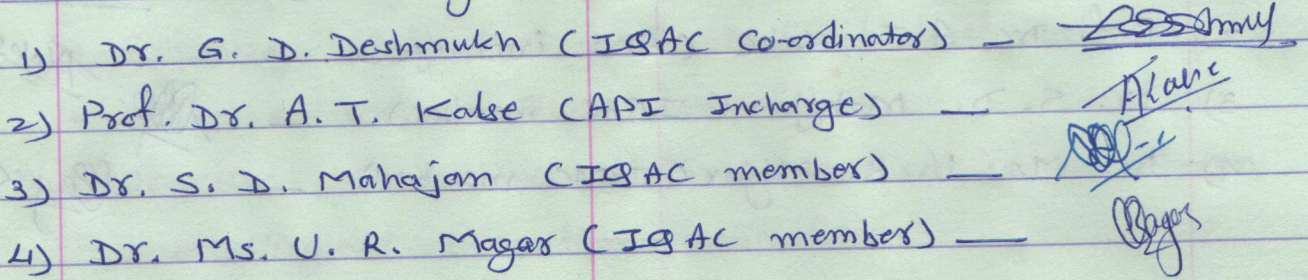 1) Dr. G. D. Deshmukh (IQAC Co-ordinator) —
2) Prof. Dr. A. T. Kalse (API Incharge) —
3) Dr. S. D. Mahajan (IQAC member) —
4) Dr. Ms. U. R. Magar (IQAC member) —